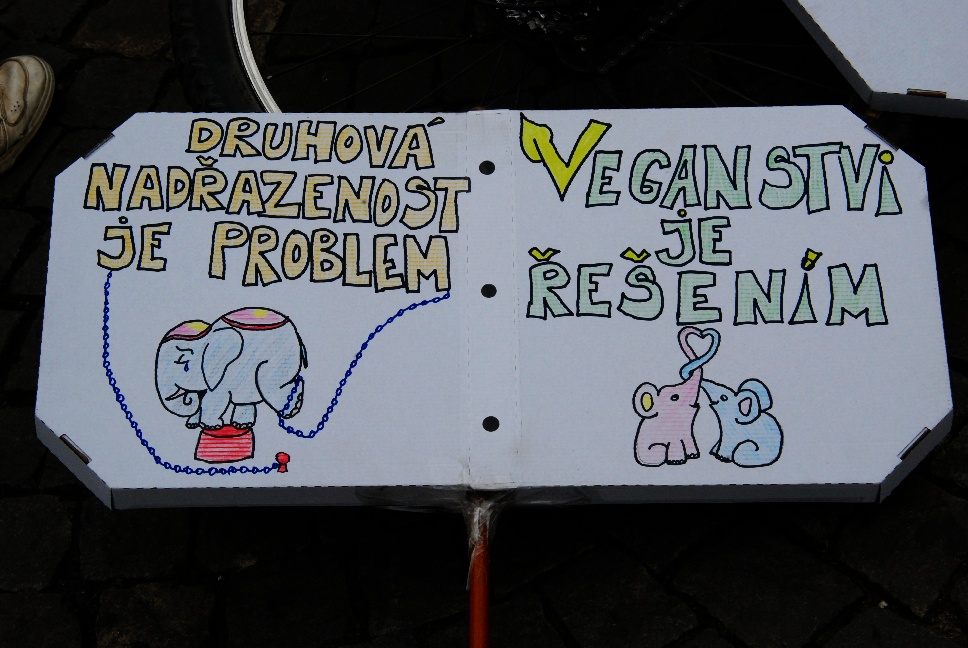 DRUHOVÁ
NADŘAZENOST
JE PROBLEM
VEGANSTVi
JE
ŘEŠENÍM